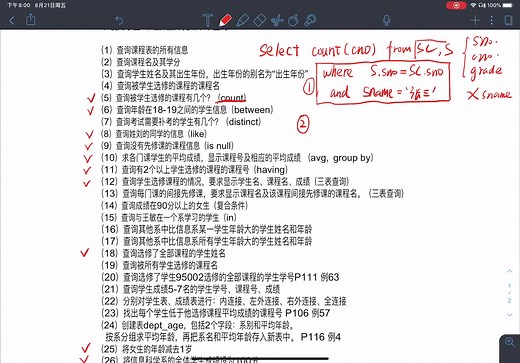 下午8:00 8月21日周五
90%
(1) 查询课程表的所有信息
(2) 查询课程名及其学分
(3) 查询学生姓名及其出生年份，出生年份的别名为“出生年份”
(4) 查询被学生选修的课程的课程名
(5) 查询被学生选修的课程有几个？ (count)
(6) 查询年龄在18-19之间的学生信息 (between)
(7) 查询考试需要补考的学生有几个？ (distinct)
(8) 查询姓刘的同学的信息 (like)
(9) 查询没有先修课的课程信息 (is null)
(10) 求各门课学生的平均成绩，显示课程号及相应的平均成绩 (avg, group by)
(11) 查询有2个以上学生选修的课程的课程号 (having)
(12) 查询学生选修课程的情况，要求显示学生名、课程名、成绩（三表查询）
(13) 查询每门课的间接先修课，要求显示课程名及该课程间接先修课的课程名。（三表查询）
(14) 查询成绩在90分以上的女生（复合条件）
(15) 查询与王敏在一个系学习的学生 (in)
(16) 查询其他系中比信息系某一学生年龄大的学生姓名和年龄
(17) 查询其他系中比信息系所有学生年龄大的学生姓名和年龄
(18) 查询选修了全部课程的学生姓名
(19) 查询被所有学生选修的课程名
(20) 查询选修了学生95002选修的全部课程的学生学号P111 例63
(21) 查询学生成绩5-7名的学生学号、课程号、成绩
(22) 分别对学生表、成绩表进行：内连接、左外连接、右外连接、全连接
(23) 找出每个学生低于他选修课程平均成绩的课程号 P106 例57
(24) 创建表dept_age，包括2个字段：系别和平均年龄。
按系分组求平均年龄，再把系名和平均年龄存入新表中。 P116 例4
(25) 将女生的年龄减去1岁
(26) 将信息科学系的全体学生成绩设为100分
select count(cno) from SC, S
① where S.sno=SC.sno
and sname='张三'
②
sno.
cno.
grade
× sname
1 / 2
2 / 2